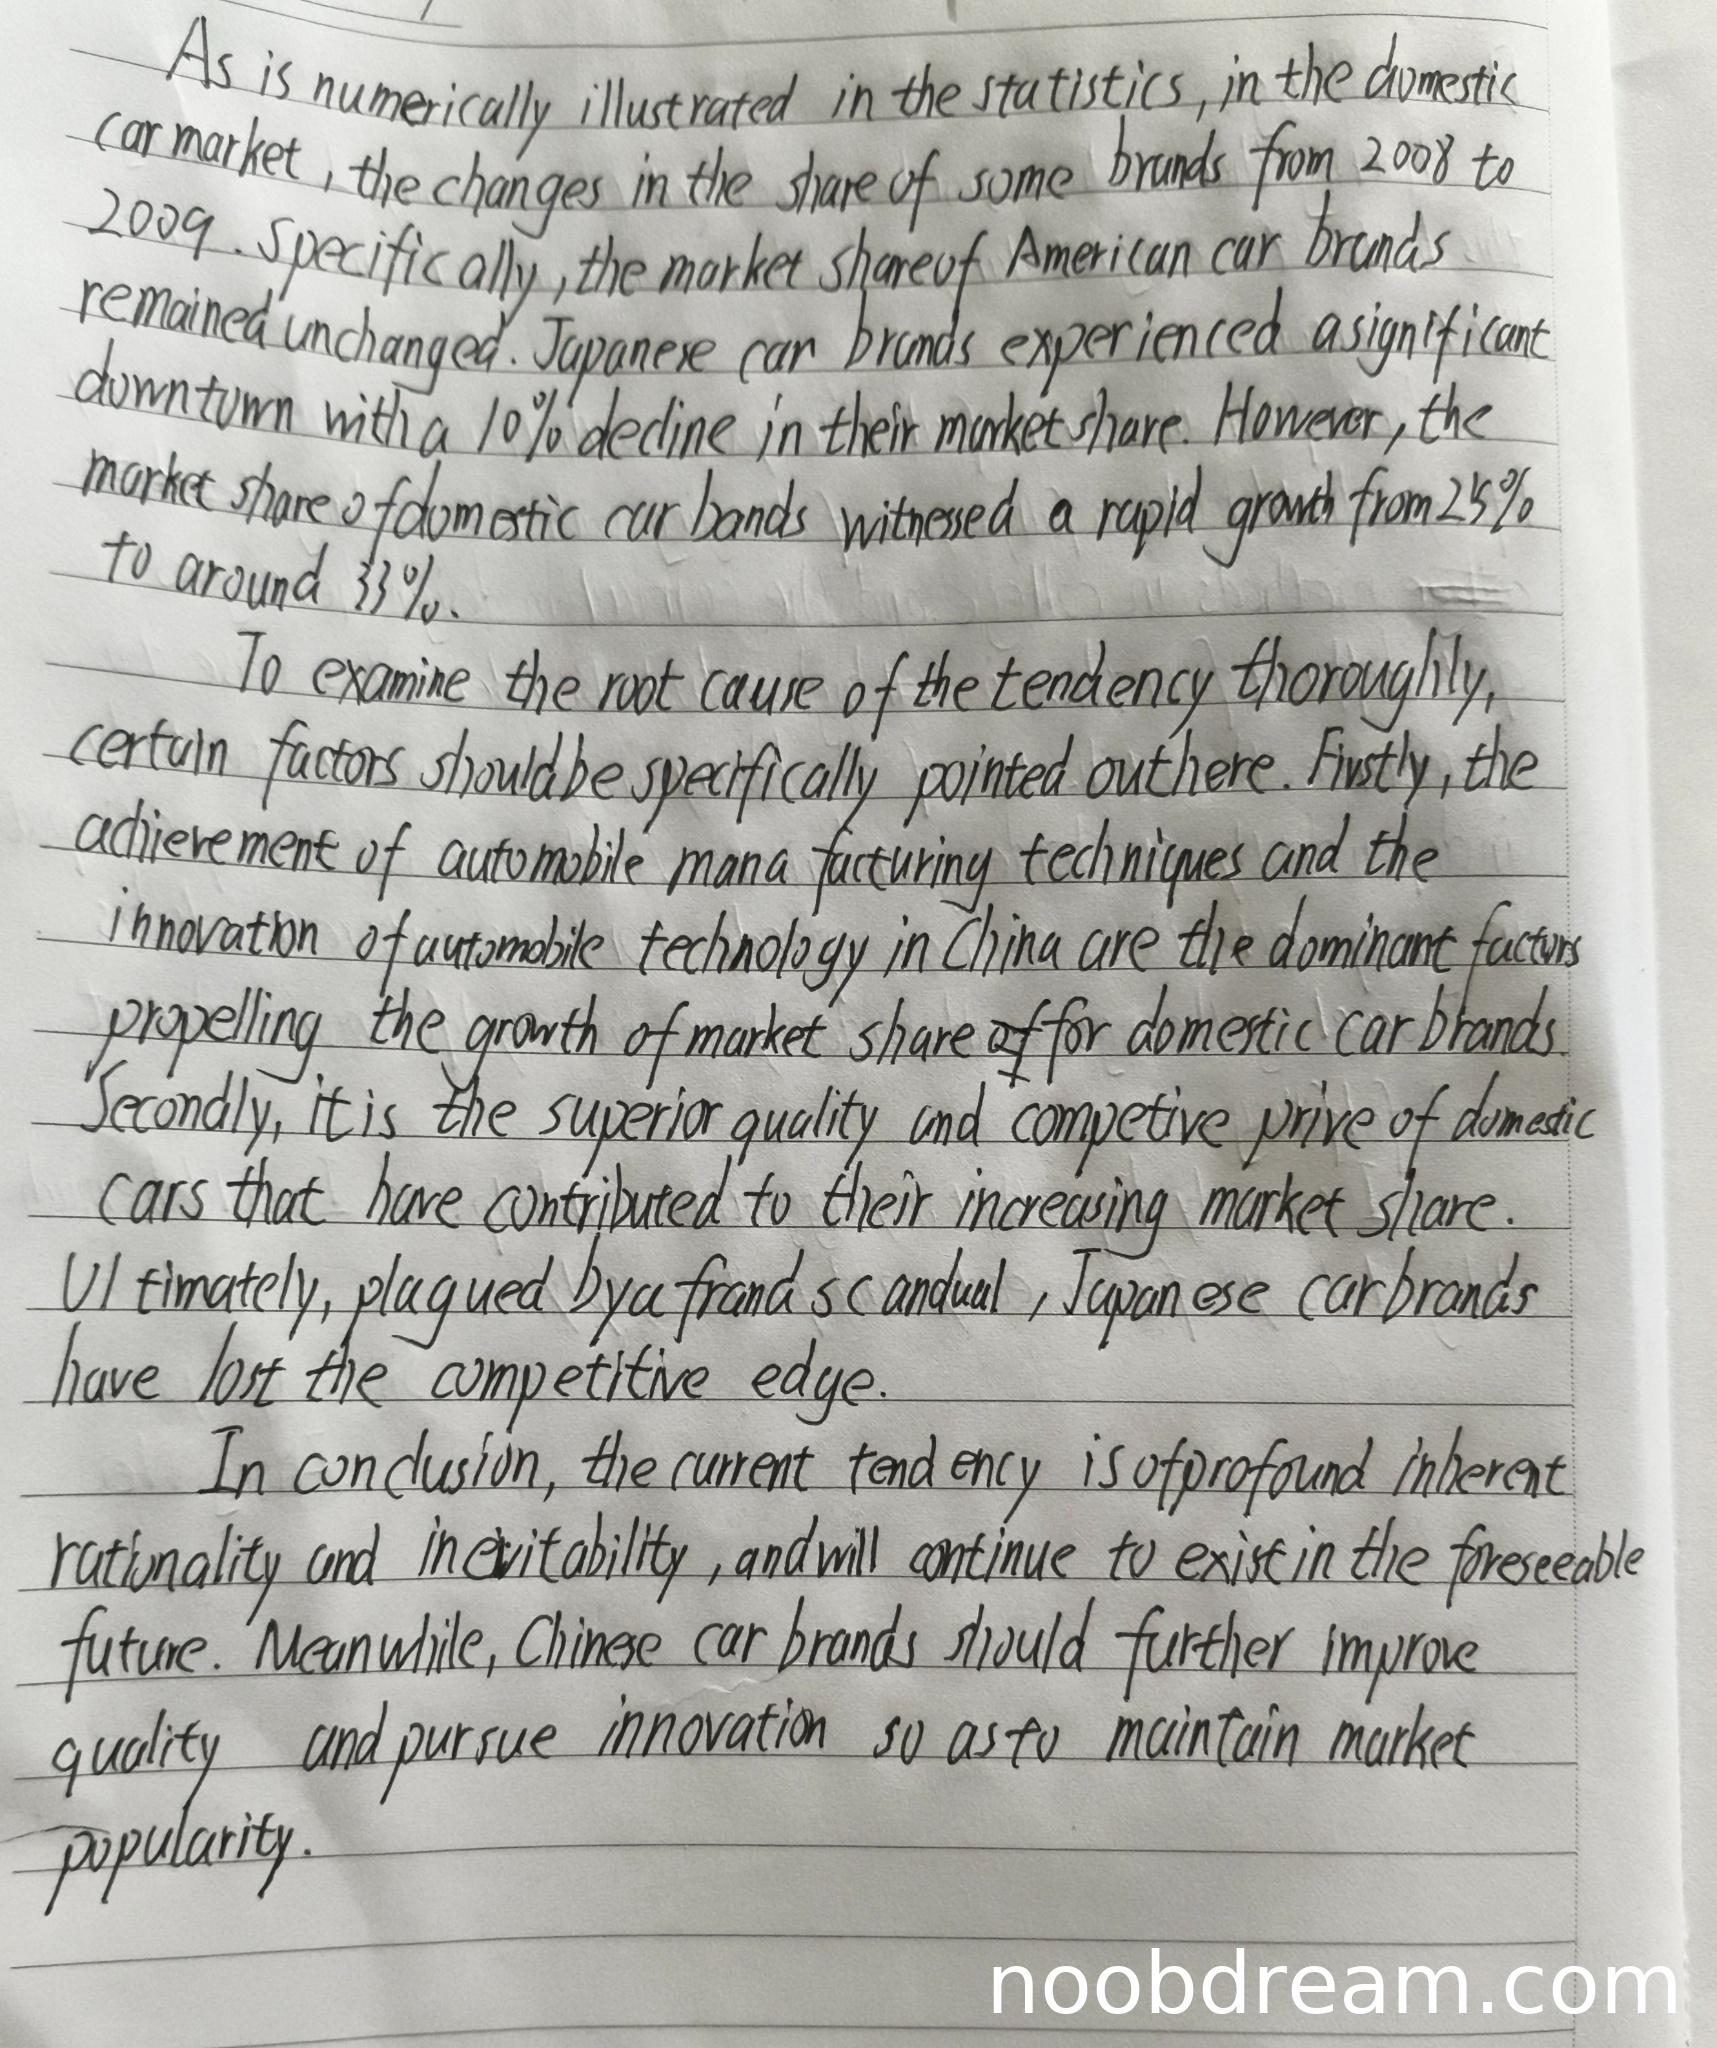 As is numerically illustrated in the statistics, in the domestic
car market, the changes in the share of some brands from 2008 to
2009. Specifically, the market share of American car brands
remained unchanged. Japanese car brands experienced a significant
downturn with a 10% decline in their market share. However, the
market share of domestic car bands witnessed a rapid growth from 25%
to around 33%.
To examine the root cause of the tendency thoroughly,
certain factors should be specifically pointed out here. Firstly, the
achievement of automobile manafacturing techniques and the
innovation of automobile technology in China are the dominant factors
propelling the growth of market share for domestic car brands.
Secondly, it is the superior quality and competive prive of domestic
cars that have contributed to their increasing market share.
Ultimately, plagued by a frand scandual, Japanese car brands
have lost the competitive edge.
In conclusion, the current tendency is of profound inherent
rationality and inevitability, and will continue to exist in the foreseeable
future. Meanwhile, Chinese car brands should further improve
quality and pursue innovation so as to maintain market
popularity.
noobdream.com